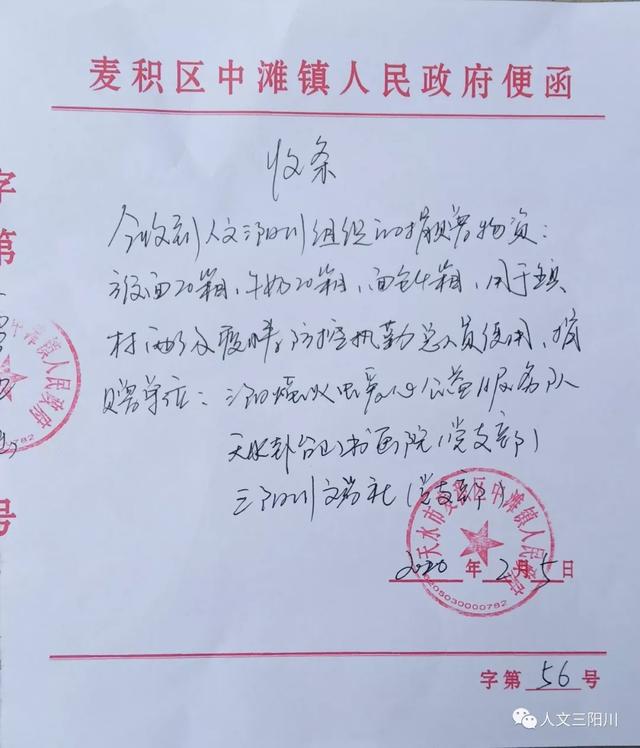 麦积区中滩镇人民政府便函
收条
今收到人文三阳川组织的捐赠物资:
方便面20箱,牛奶20箱,面包4箱,用于镇
村两级疫情防控执勤点人员使用,捐
赠单位:三阳川萤火虫爱心公益服务队
天水卦台山书画院(党支部)
三阳川文学社(党支部)
天水市麦积区中滩镇人民政府
6205030000782
2020年2月5日
字第56号
字
第
号
中滩镇人民政府
782
人文三阳川